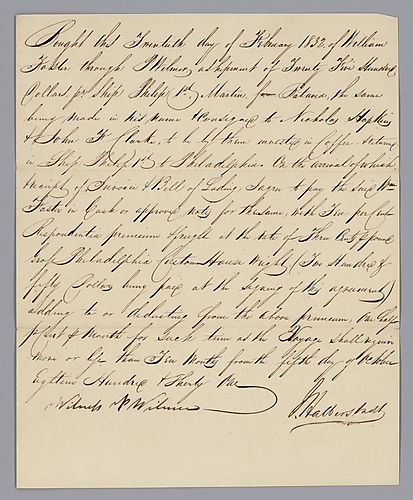 Bought this Twentieth day of February 1832, of William
Foster through P Wilmer, a shipment of Twenty Five Hundred
Dollars, pr Ship Philip 1st, Martin, for Batavia, the same
being made in his name & Consigned to Nicholas Hopkins
& John H Clarke, to be by them invested in Coffee & returned
in Ship Philip 1st to Philadelphia. On the arrival of which, &
receipt of Invoice & Bill of Lading I agree to pay the said Wm
Foster in Cash or approved note for the same, with Ten per Cent
Respondentia premium & freight at the rate of Three Cents pound
Gross Philadelphia Custom House weight, (Two Hundred &
fifty Dollars being paid at the signing of this agreement)
adding to or deducting from the above premium, One half
pr Cent pr month for such time as the Voyage shall require
more or less than Ten Months from the fifth day of October
Eighteen Hundred & Thirty One
Witness P Wilmer
J. Halberstadt